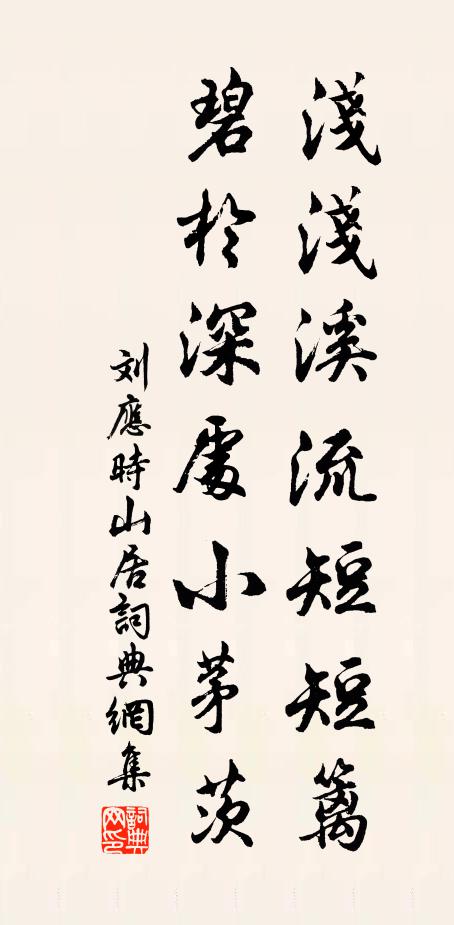 淺淺溪流短短籬
碧於深處小茅茨
刘應時山居詞典網集
詞典網印